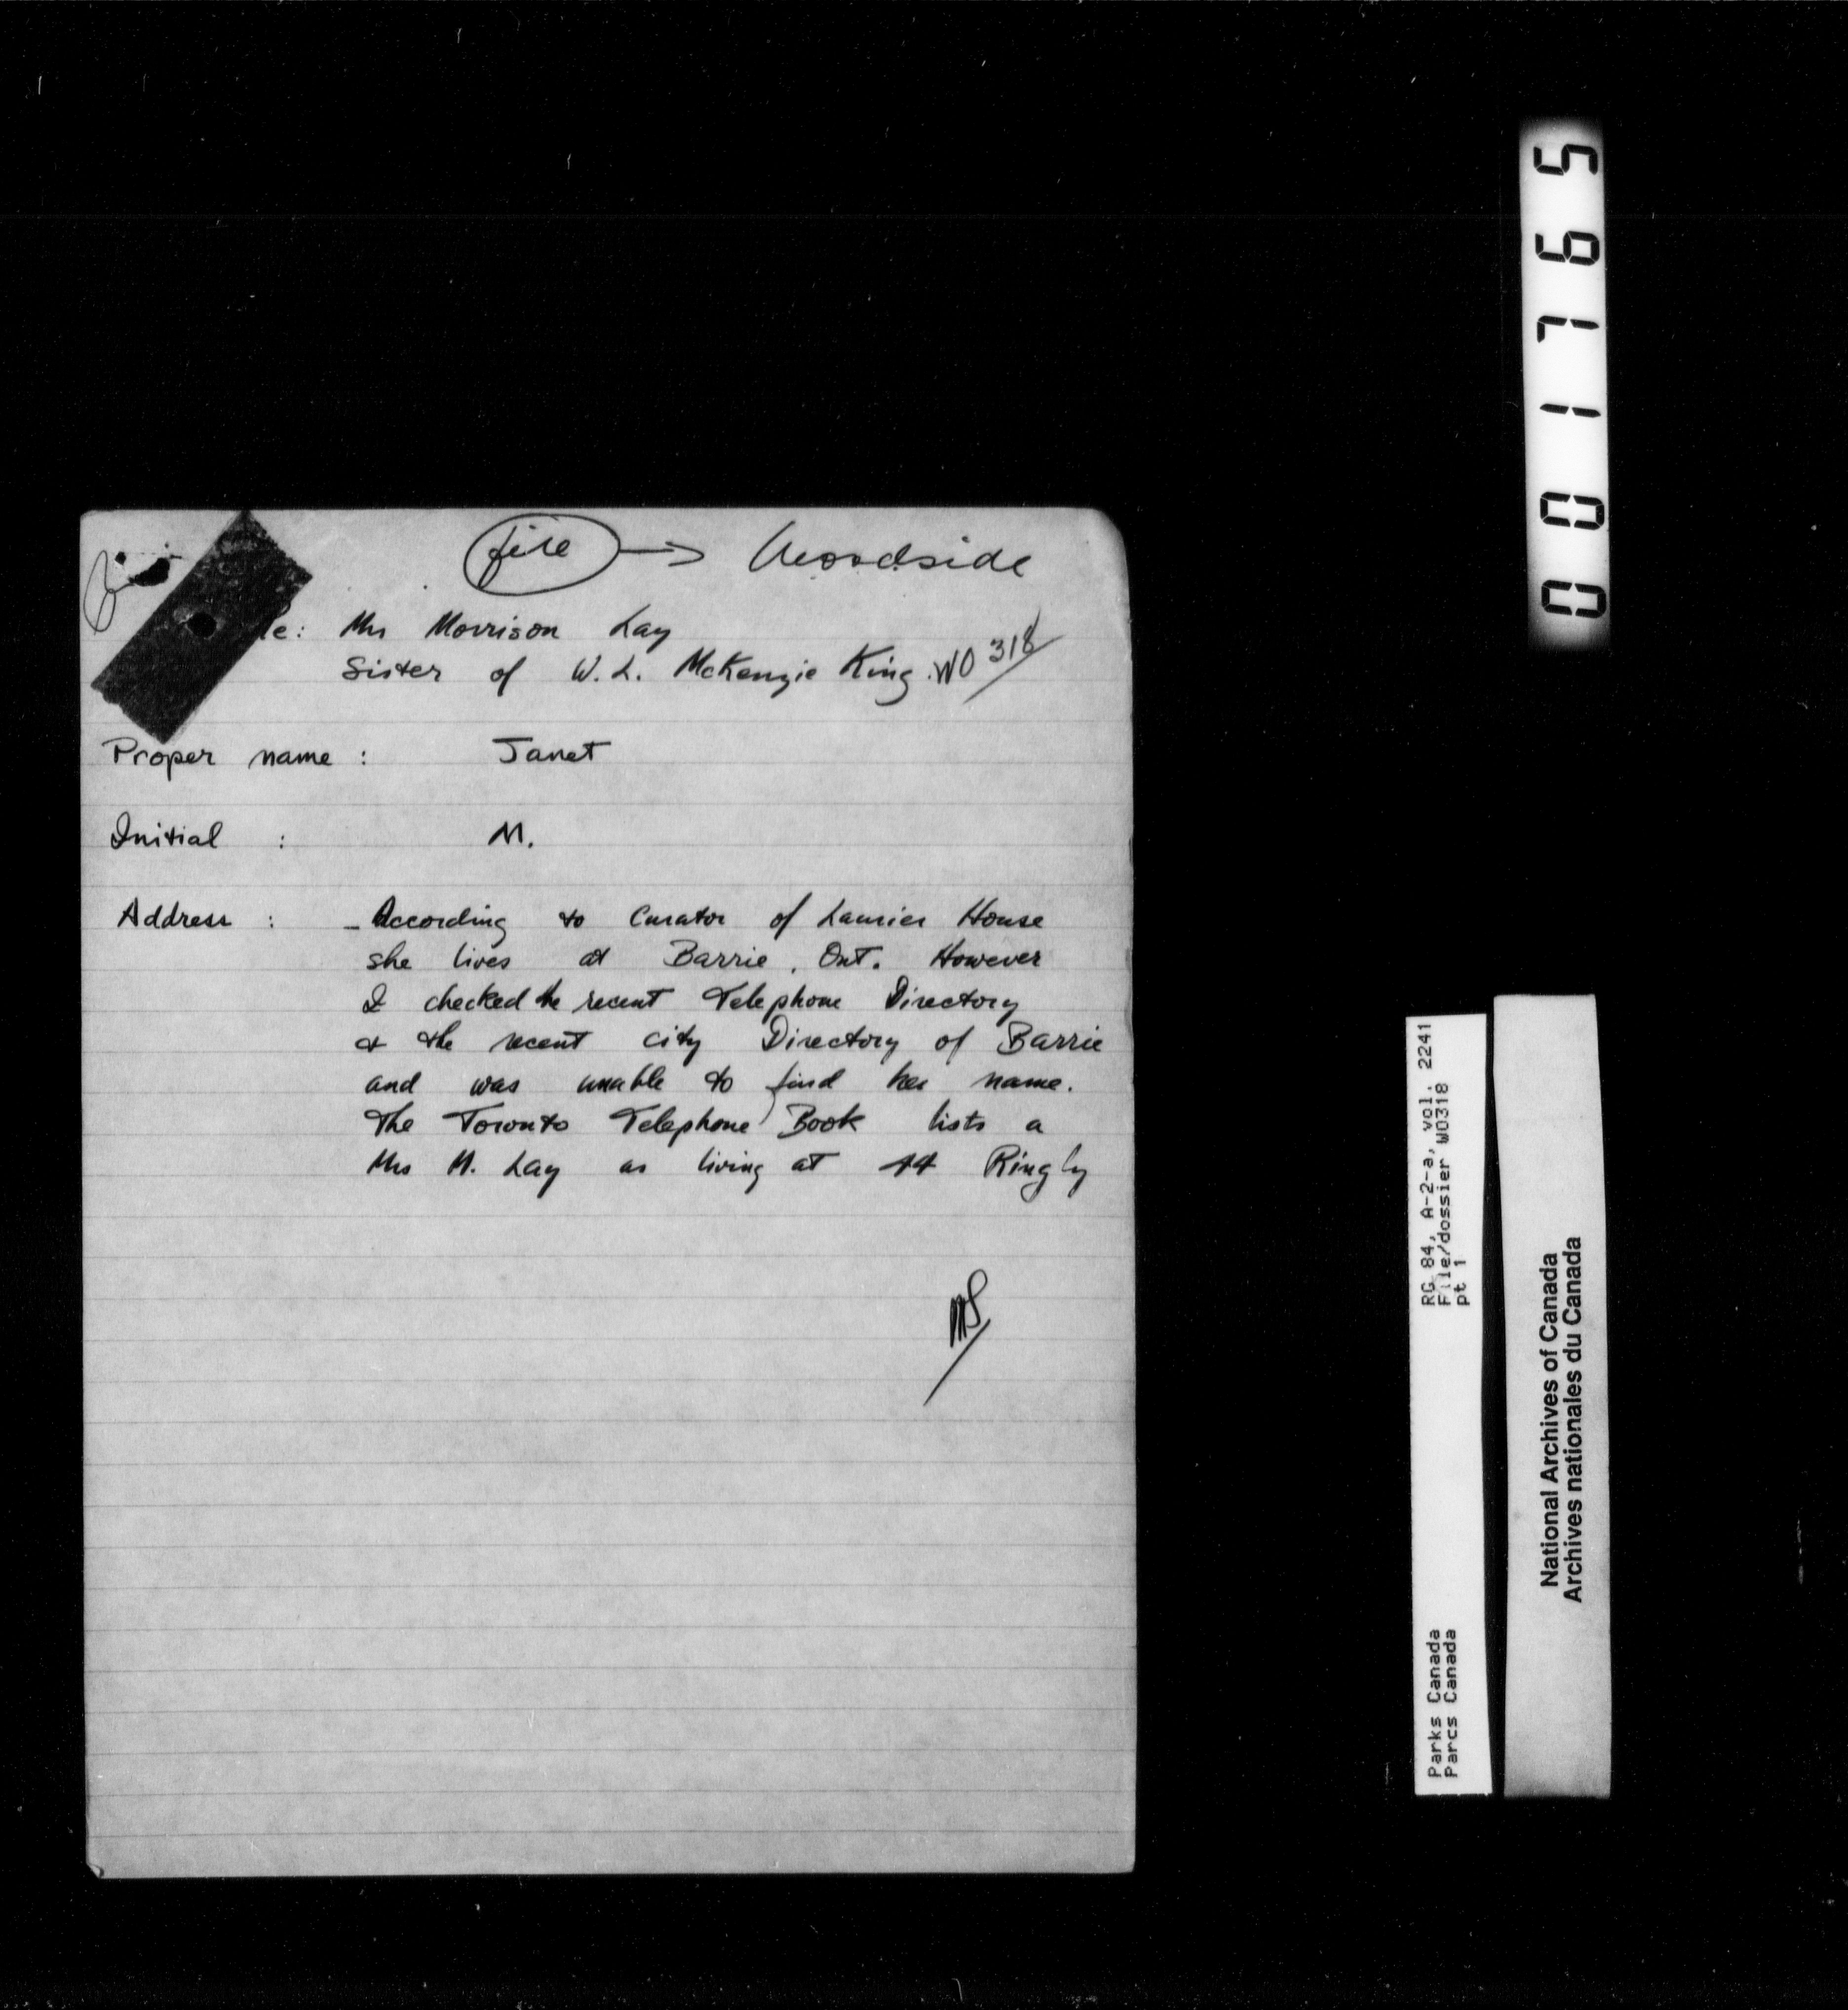 file → Woodside
Re: Mrs Morrison Lay
Sister of W. L. McKenzie King. WO 318
Proper name : Janet
Initial : M.
Address : - According to Curator of Laurier House
she lives at Barrie, Ont. However
I checked the recent Telephone Directory
& the recent city Directory of Barrie
and was unable to find her name.
The Toronto Telephone Book lists a
Mrs M. Lay as living at 44 Ringly
MS
001765
RG 84, A-2-a, vol. 2241
File/dossier WO318
pt 1
Parks Canada
Parcs Canada
National Archives of Canada
Archives nationales du Canada